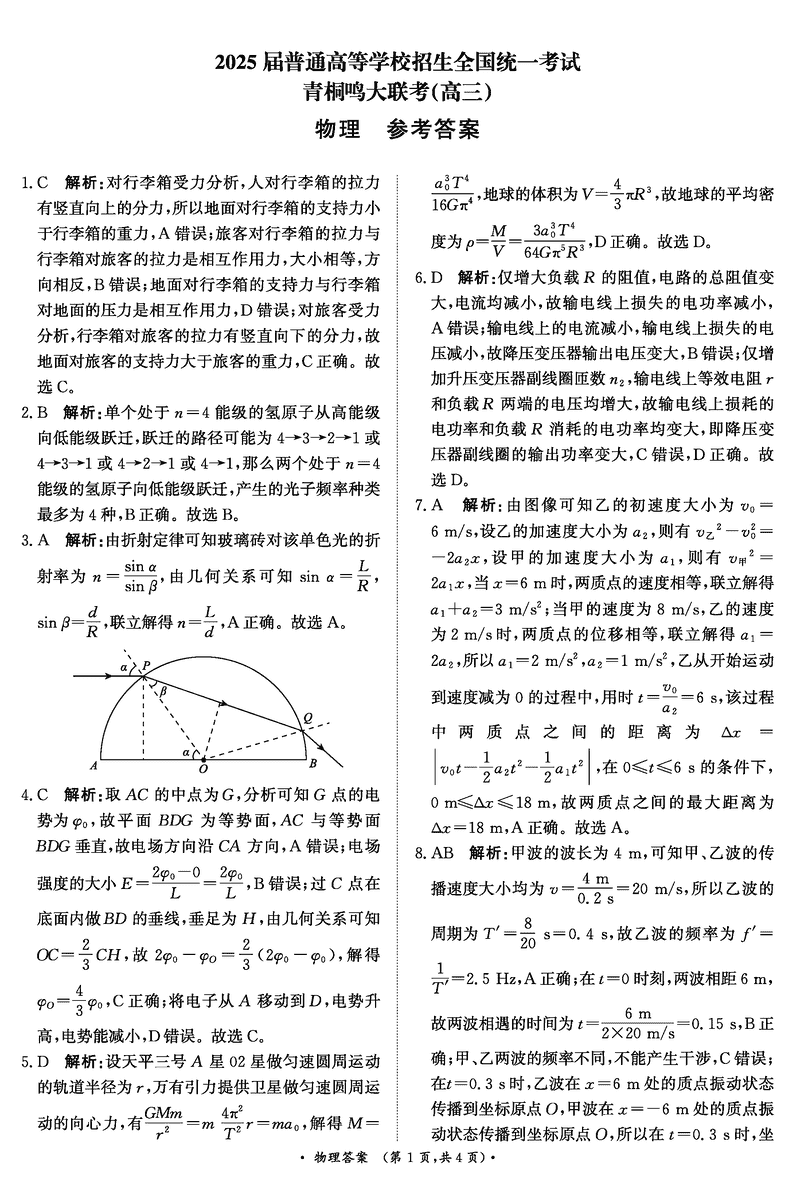 2025 届普通高等学校招生全国统一考试
青桐鸣大联考(高三)
物理 参考答案
1. C 解析:对行李箱受力分析,人对行李箱的拉力
有竖直向上的分力,所以地面对行李箱的支持力小
于行李箱的重力,A 错误;旅客对行李箱的拉力与
行李箱对旅客的拉力是相互作用力,大小相等,方
向相反,B 错误;地面对行李箱的支持力与行李箱
对地面的压力是相互作用力,D 错误;对旅客受力
分析,行李箱对旅客的拉力有竖直向下的分力,故
地面对旅客的支持力大于旅客的重力,C 正确。故
选 C。
2. B 解析:单个处于 n=4 能级的氢原子从高能级
向低能级跃迁,跃迁的路径可能为 4→3→2→1 或
4→3→1 或 4→2→1 或 4→1,那么两个处于 n=4
能级的氢原子向低能级跃迁,产生的光子频率种类
最多为 4 种,B 正确。故选 B。
3. A 解析:由折射定律可知玻璃砖对该单色光的折
射率为 n=sin α/sin β,由几何关系可知 sin α=L/R,
sin β=d/R,联立解得 n=L/d,A 正确。故选 A。
α P
β
Q
α
A O B
4. C 解析:取 AC 的中点为 G,分析可知 G 点的电
势为 φ₀,故平面 BDG 为等势面,AC 与等势面
BDG 垂直,故电场方向沿 CA 方向,A 错误;电场
强度的大小 E=(2φ₀-0)/L=2φ₀/L,B 错误;过 C 点在
底面内做 BD 的垂线,垂足为 H,由几何关系可知
OC=2/3 CH,故 2φ₀-φ_O=2/3(2φ₀-φ₀),解得
φ_O=4/3 φ₀,C 正确;将电子从 A 移动到 D,电势升
高,电势能减小,D 错误。故选 C。
5. D 解析:设天平三号 A 星 02 星做匀速圆周运动
的轨道半径为 r,万有引力提供卫星做匀速圆周运
动的向心力,有 GMm/r²=m 4π²/T² r=ma₀,解得 M=
a₀³T⁴/16Gπ⁴,地球的体积为 V=4/3 πR³,故地球的平均密
度为 ρ=M/V=3a₀³T⁴/64Gπ⁵R³,D 正确。故选 D。
6. D 解析:仅增大负载 R 的阻值,电路的总阻值变
大,电流均减小,故输电线上损失的电功率减小,
A 错误;输电线上的电流减小,输电线上损失的电
压减小,故降压变压器输出电压变大,B 错误;仅增
加升压变压器副线圈匝数 n₂,输电线上等效电阻 r
和负载 R 两端的电压均增大,故输电线上损耗的
电功率和负载 R 消耗的电功率均变大,即降压变
压器副线圈的输出功率变大,C 错误,D 正确。故
选 D。
7. A 解析:由图像可知乙的初速度大小为 v₀=
6 m/s,设乙的加速度大小为 a₂,则有 v乙²-v₀²=
-2a₂x,设甲的加速度大小为 a₁,则有 v甲²=
2a₁x,当 x=6 m 时,两质点的速度相等,联立解得
a₁+a₂=3 m/s²;当甲的速度为 8 m/s,乙的速度
为 2 m/s 时,两质点的位移相等,联立解得 a₁=
2a₂,所以 a₁=2 m/s²,a₂=1 m/s²,乙从开始运动
到速度减为 0 的过程中,用时 t=v₀/a₂=6 s,该过程
中两质点之间的距离为 Δx=
|v₀t-1/2 a₂t²-1/2 a₁t²|,在 0≤t≤6 s 的条件下,
0 m≤Δx≤18 m,故两质点之间的最大距离为
Δx=18 m,A 正确。故选 A。
8. AB 解析:甲波的波长为 4 m,可知甲、乙波的传
播速度大小均为 v=4 m/0.2 s=20 m/s,所以乙波的
周期为 T′=8/20 s=0.4 s,故乙波的频率为 f′=
1/T′=2.5 Hz,A 正确;在 t=0 时刻,两波相距 6 m,
故两波相遇的时间为 t=6 m/(2×20 m/s)=0.15 s,B 正
确;甲、乙两波的频率不同,不能产生干涉,C 错误;
在 t=0.3 s 时,乙波在 x=6 m 处的质点振动状态
传播到坐标原点 O,甲波在 x=-6 m 处的质点振
动状态传播到坐标原点 O,所以在 t=0.3 s 时,坐
· 物理答案 (第 1 页,共 4 页) ·